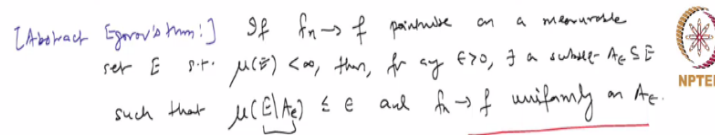 [Abstract Egorov's thm:] If fn → f pointwise on a measurable
set E s.t. μ(E) < ∞, then, for any ϵ>0, ∃ a subset Aϵ ⊆ E
such that μ(E\Aϵ) ≤ ϵ and fn → f uniformly on Aϵ.
NPTEL